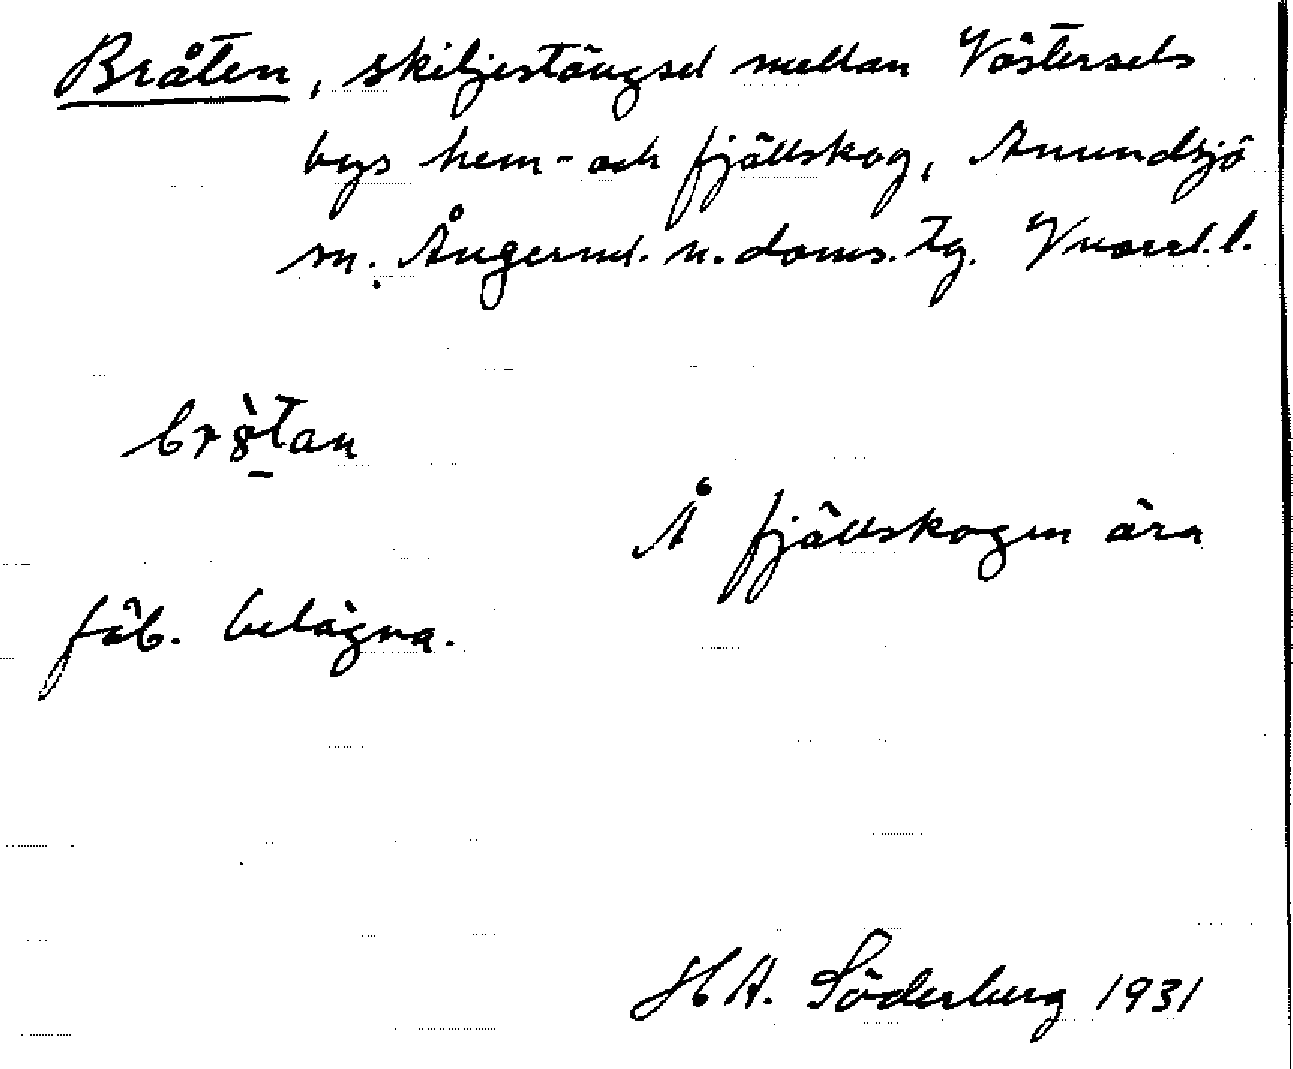 Bråten, skiljestängsel mellan Västersels
bys hem- och fjällskog, Anundsjö
sn. Ångerml. n. doms. tg. Vnorrl. l.
brò̱tan
Å fjällskogen ära
fäb. belägna.
HA. Söderberg 1931